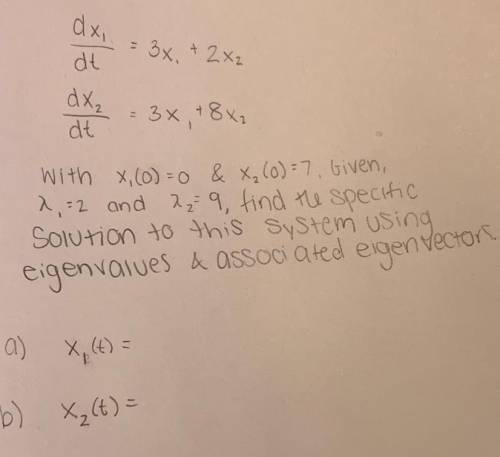 dx₁/dt = 3x₁ + 2x₂
dx₂/dt = 3x₁ + 8x₂
With x₁(0)=0 & x₂(0)=7. Given,
λ₁=2 and λ₂=9, find the specific
Solution to this system using
eigenvalues & associated eigenvectors.
a) x₁(t) =
b) x₂(t) =